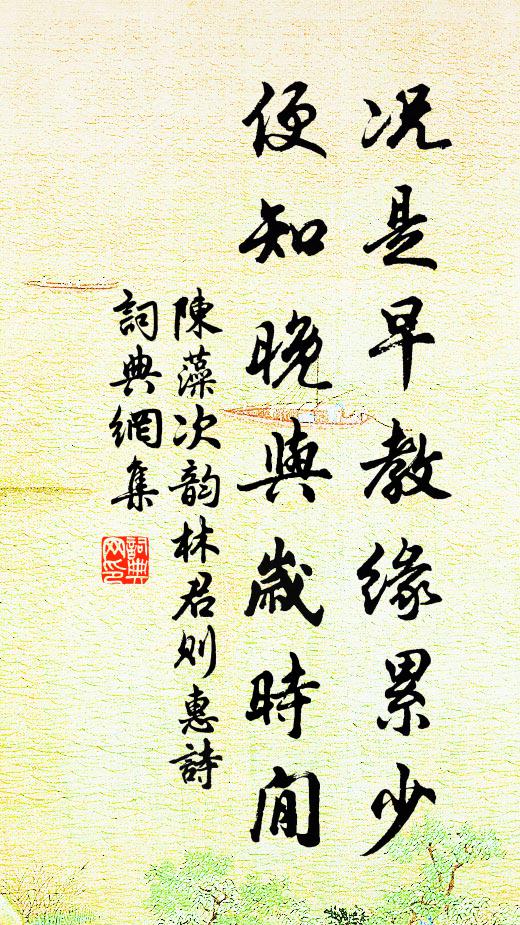 况是早教缘累少
便知晚與歲時閒
陳藻次韵林君则惠詩
詞典網集
詞典网印